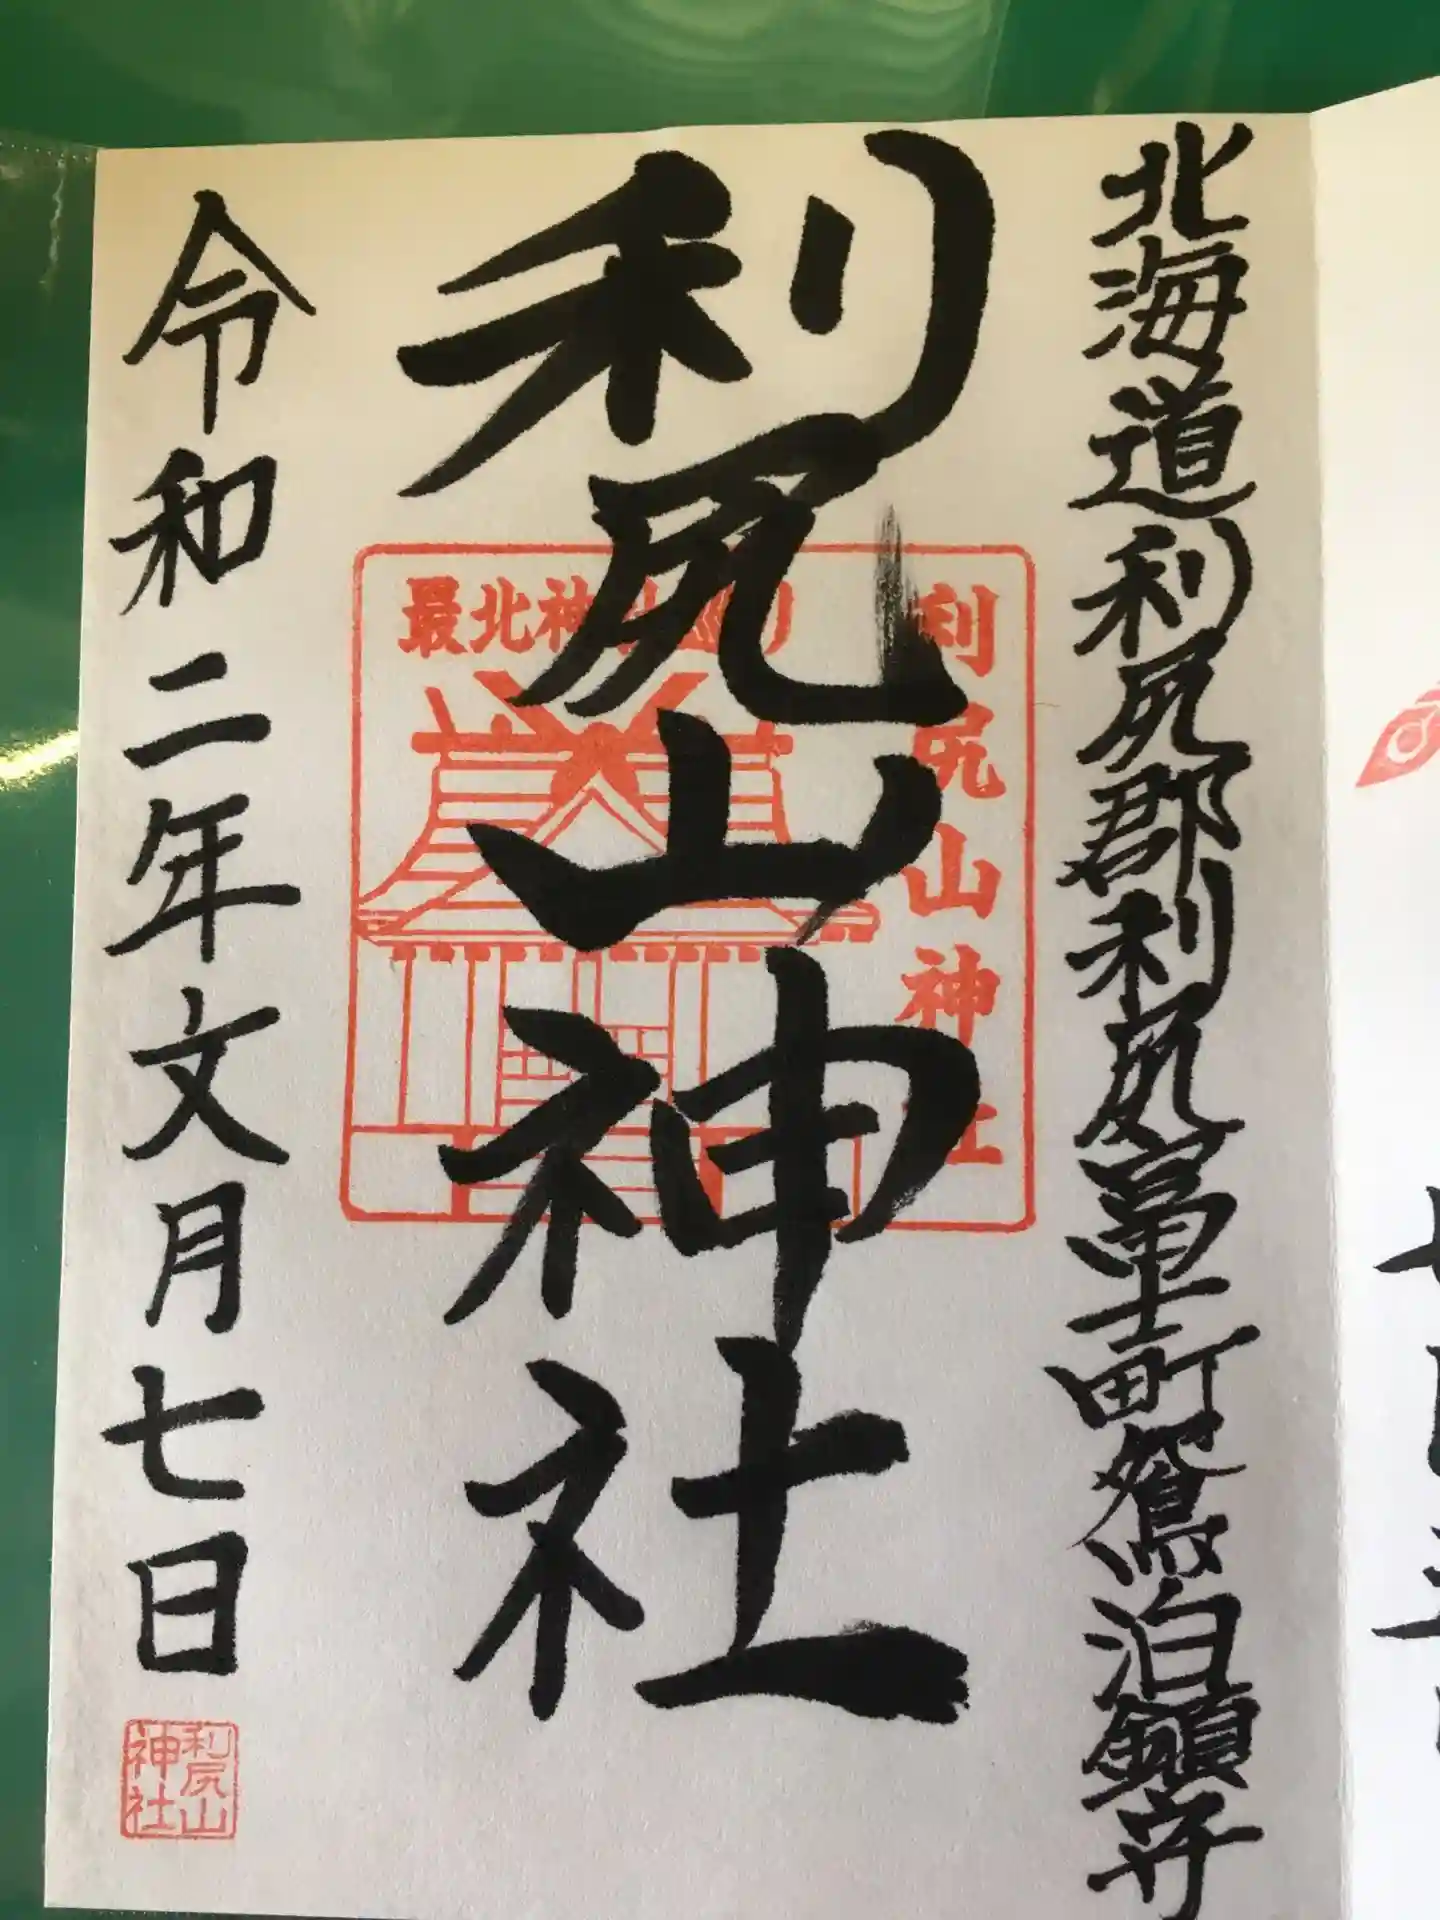 北海道利尻郡利尻富士町鴛泊鎮守
利尻山神社
最北神社巡り
利尻山神社
令和二年文月七日
利尻山
神社